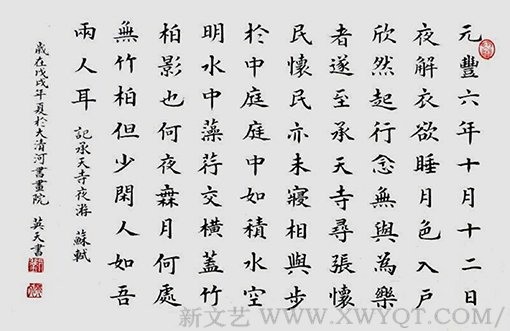 元豐六年十月十二日
夜解衣欲睡月色入戶
欣然起行念無與為樂
者遂至承天寺尋張懷
民懷民亦未寢相與步
於中庭庭中如積水空
明水中藻荇交橫蓋竹
柏影也何夜無月何處
無竹柏但少閑人如吾
兩人耳 記承天寺夜游 蘇軾
歲在戊戌年夏於大清河書畫院 英天書
新文艺 WWW.XWYQT.COM